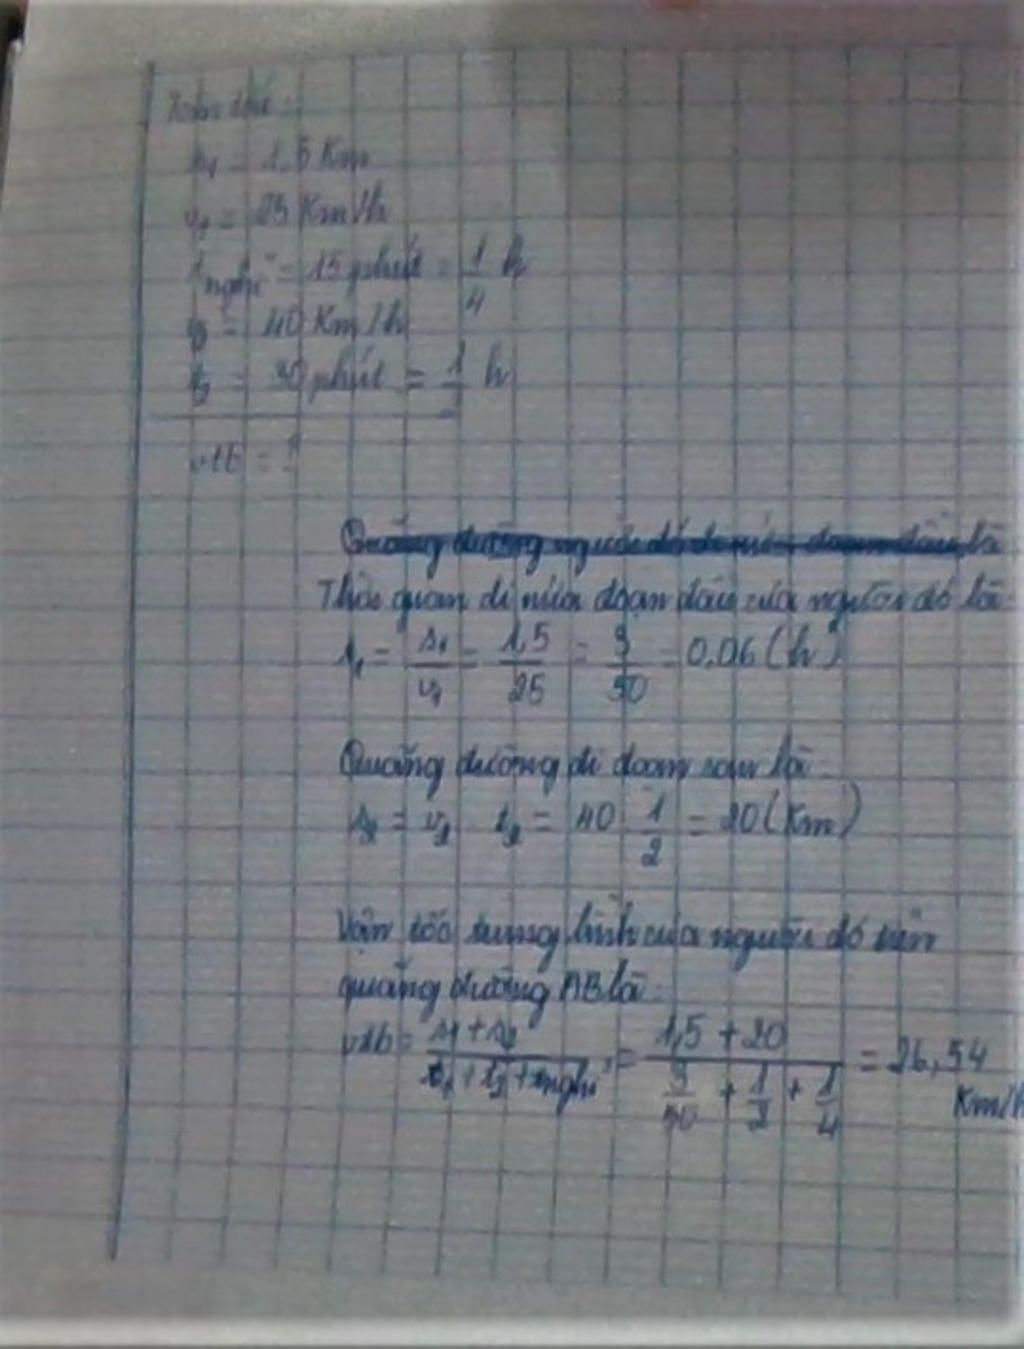 Tóm tắt:
s₁ = 1,5 Km
v₁ = 25 Km/h
t nghỉ = 15 phút = 1/4 h
v₂ = 40 Km/h
t₂ = 30 phút = 1/2 h
vtb = ?
Quãng đường người đó đi nửa đoạn đầu là
Thời quan đi nửa đoạn đầu của người đó là:
t₁ = s₁/v₁ = 1,5/25 = 3/50 = 0,06 (h)
Quãng đường đi đoạn sau là
s₂ = v₂ . t₂ = 40 . 1/2 = 20 (Km)
Vận tốc trung bình của người đó trên
quãng đường AB là:
vtb = s₁ + s₂ / t₁ + t₂ + t nghỉ = 1,5 + 20 / 3/50 + 1/2 + 1/4 = 26,54
Km/h